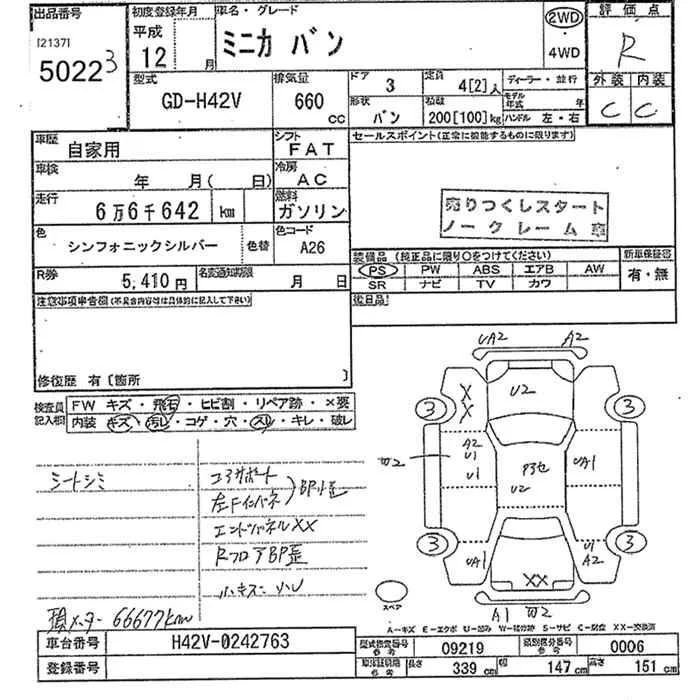 出品番号
[2137]
50223
初度登録年月
平成
12 月
車名・グレード
ミニカ バン
2WD
・
4WD
評価点
R
外装 内装
C C
型式
GD-H42V
排気量
660 cc
ドア
3
定員
4[2]人
ディーラー・並行
形状
バン
積載
200[100]kg
モデル年式 年
ハンドル 左・右
車歴
自家用
シフト
FAT
車検
年 月( 日)
冷房
AC
走行
6万6千642 km
燃料
ガソリン
色
シンフォニックシルバー
色替
色コード
A26
R券
5,410円
名変通知期限
月 日
セールスポイント(正常に機能するものに限ります)
売りつくしスタート
ノークレーム
装備品 (純正品に限り○をつけてください)
PS PW ABS エアB AW
SR ナビ TV カワ
新車保証書
有・無
後日品
注意事項申告欄(不具合内容等は具体的に記入して下さい)
修復歴 有〔箇所 〕
検査員記入欄
FW キズ・飛石・ヒビ割・リペア跡・×要
内装 キズ・汚レ・コゲ・穴・スレ・キレ・破レ
シートシミ
コアサポート
左Fインパネ
BP小歪
エンドパネルXX
RフロアBP歪
小キズ・凹
積メーター 66677km
UA2 A2
U2
X
X
3 3
A2
U1
U1
W2
P3セ
U2
UA1
3 3
UA1
U1
A2
XX
A1 W2
スペア
A-キズ E-エクボ U-凹み W-補修跡 S-サビ C-腐食 XX-交換済
車台番号
H42V-0242763
登録番号
型式指定番号 参考
09219
類別区分番号 参考
0006
車検証期限 参考
長さ 339 cm
幅 147 cm
高さ 151 cm